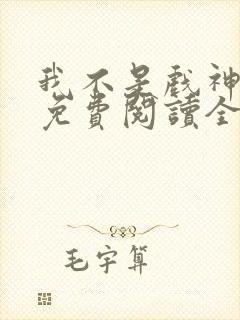 我不是戲神
免費閱讀全
毛宇算